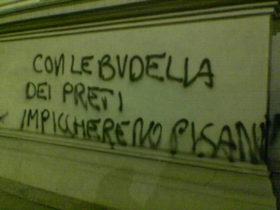 CON LE BUDELLA
DEI PRETI
IMPICCHEREMO PISANU